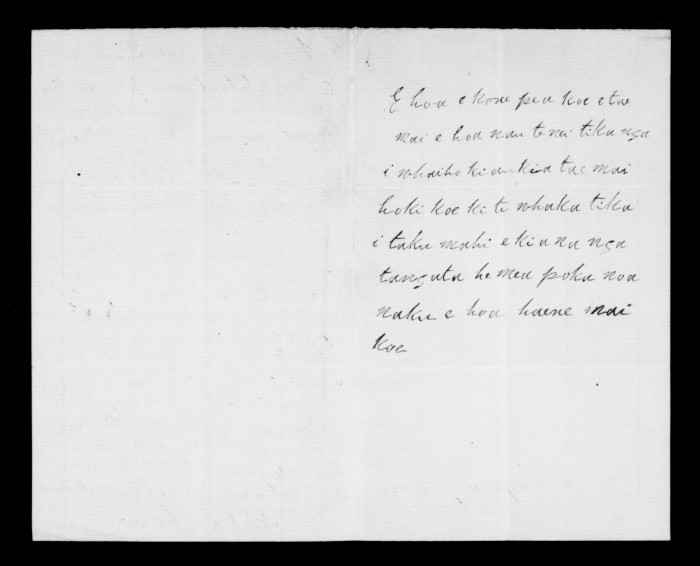 E hoa e kore pea koe e tae
mai e hoa nau te nei tika nga
i whaiho ki au kia tae mai
hoki koe ki te whaka tika
i taku mahi e kia na nga
tangata he mea poka noa
naku e hoa haere mai
koe